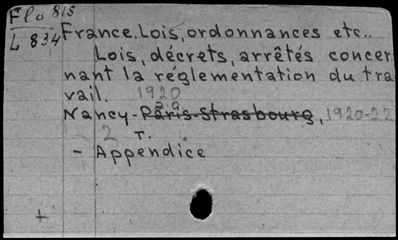 Flo 815
L 834
France. Lois, ordonnances etc..
Lois, décrets, arrêtés concer
nant la réglementation du tra
vail. 1920
Nancy-Paris-Strasbourg, 1920-22
2 T.
- Appendice
+